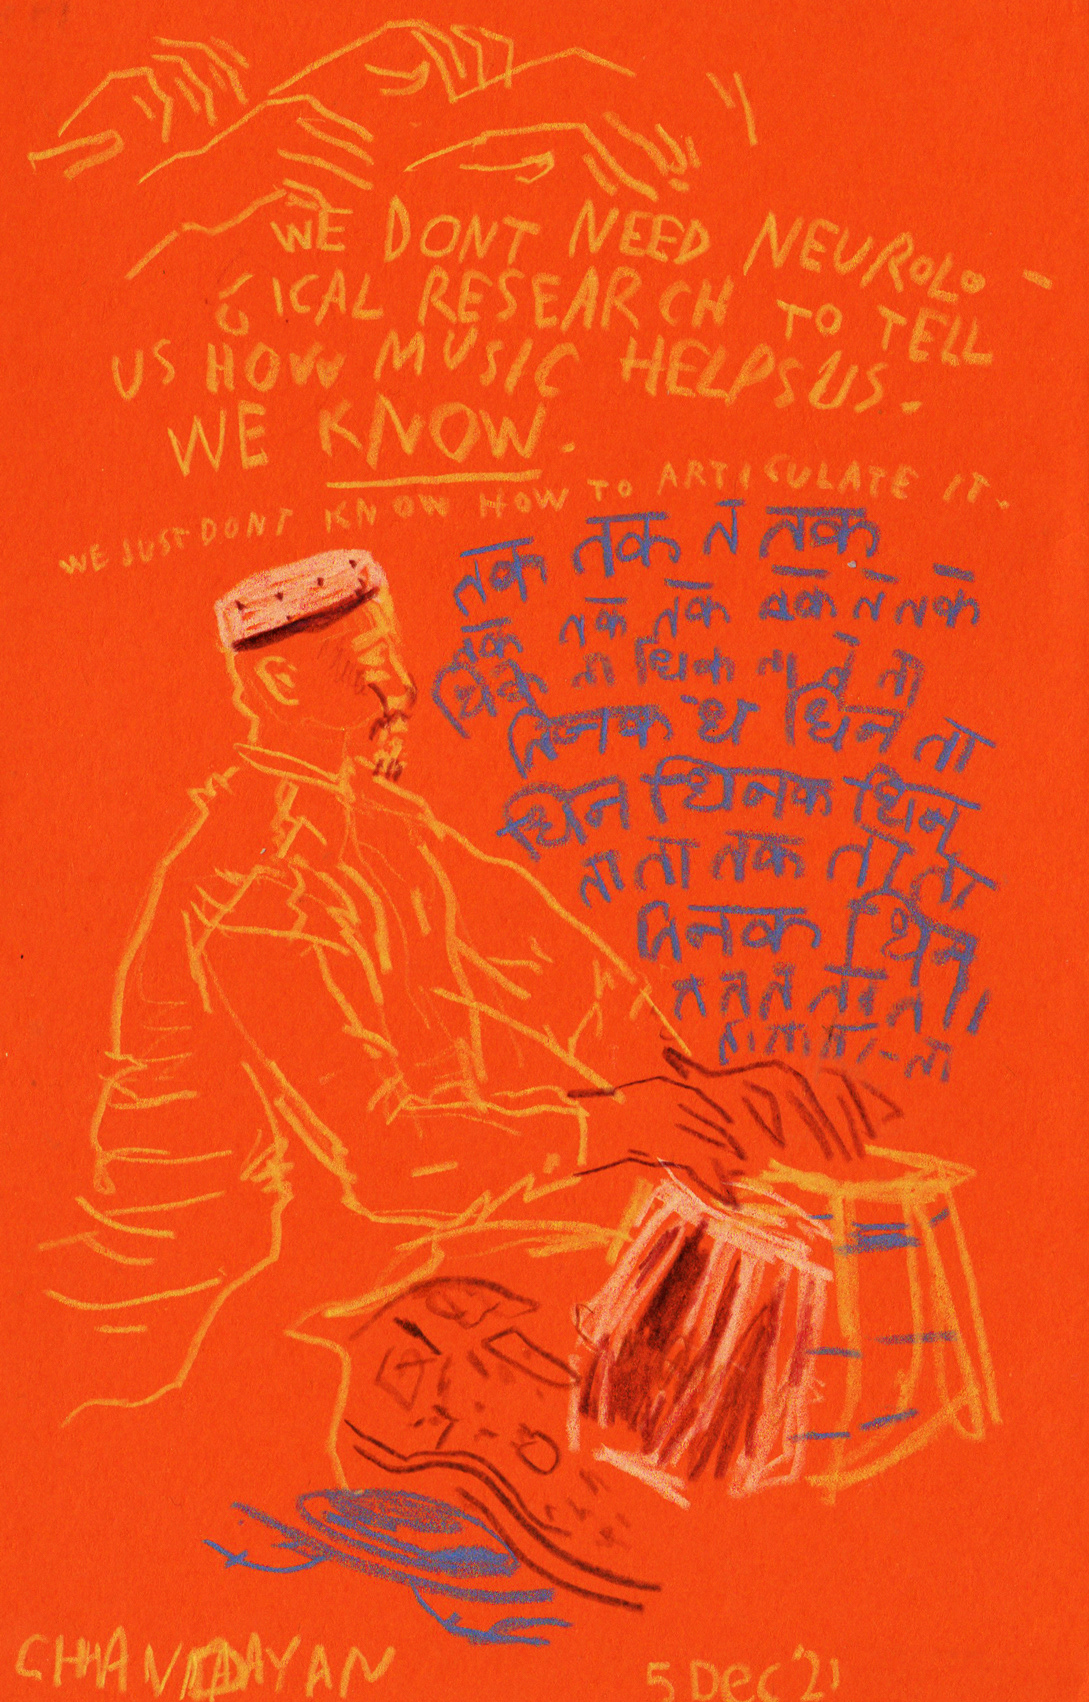 WE DONT NEED NEUROLO-
GICAL RESEARCH TO TELL
US HOW MUSIC HELPS US.
WE KNOW.
WE JUST DONT KNOW HOW TO ARTICULATE IT.
तक तक न तक
तक तक तक तक न तक
धिक ता धिक ता न ता
तिनक ध धिन ता
धिन धिनक धिन
ता ता तक ता ता
तिनक धिन
CHHANDAYAN
5 Dec'21